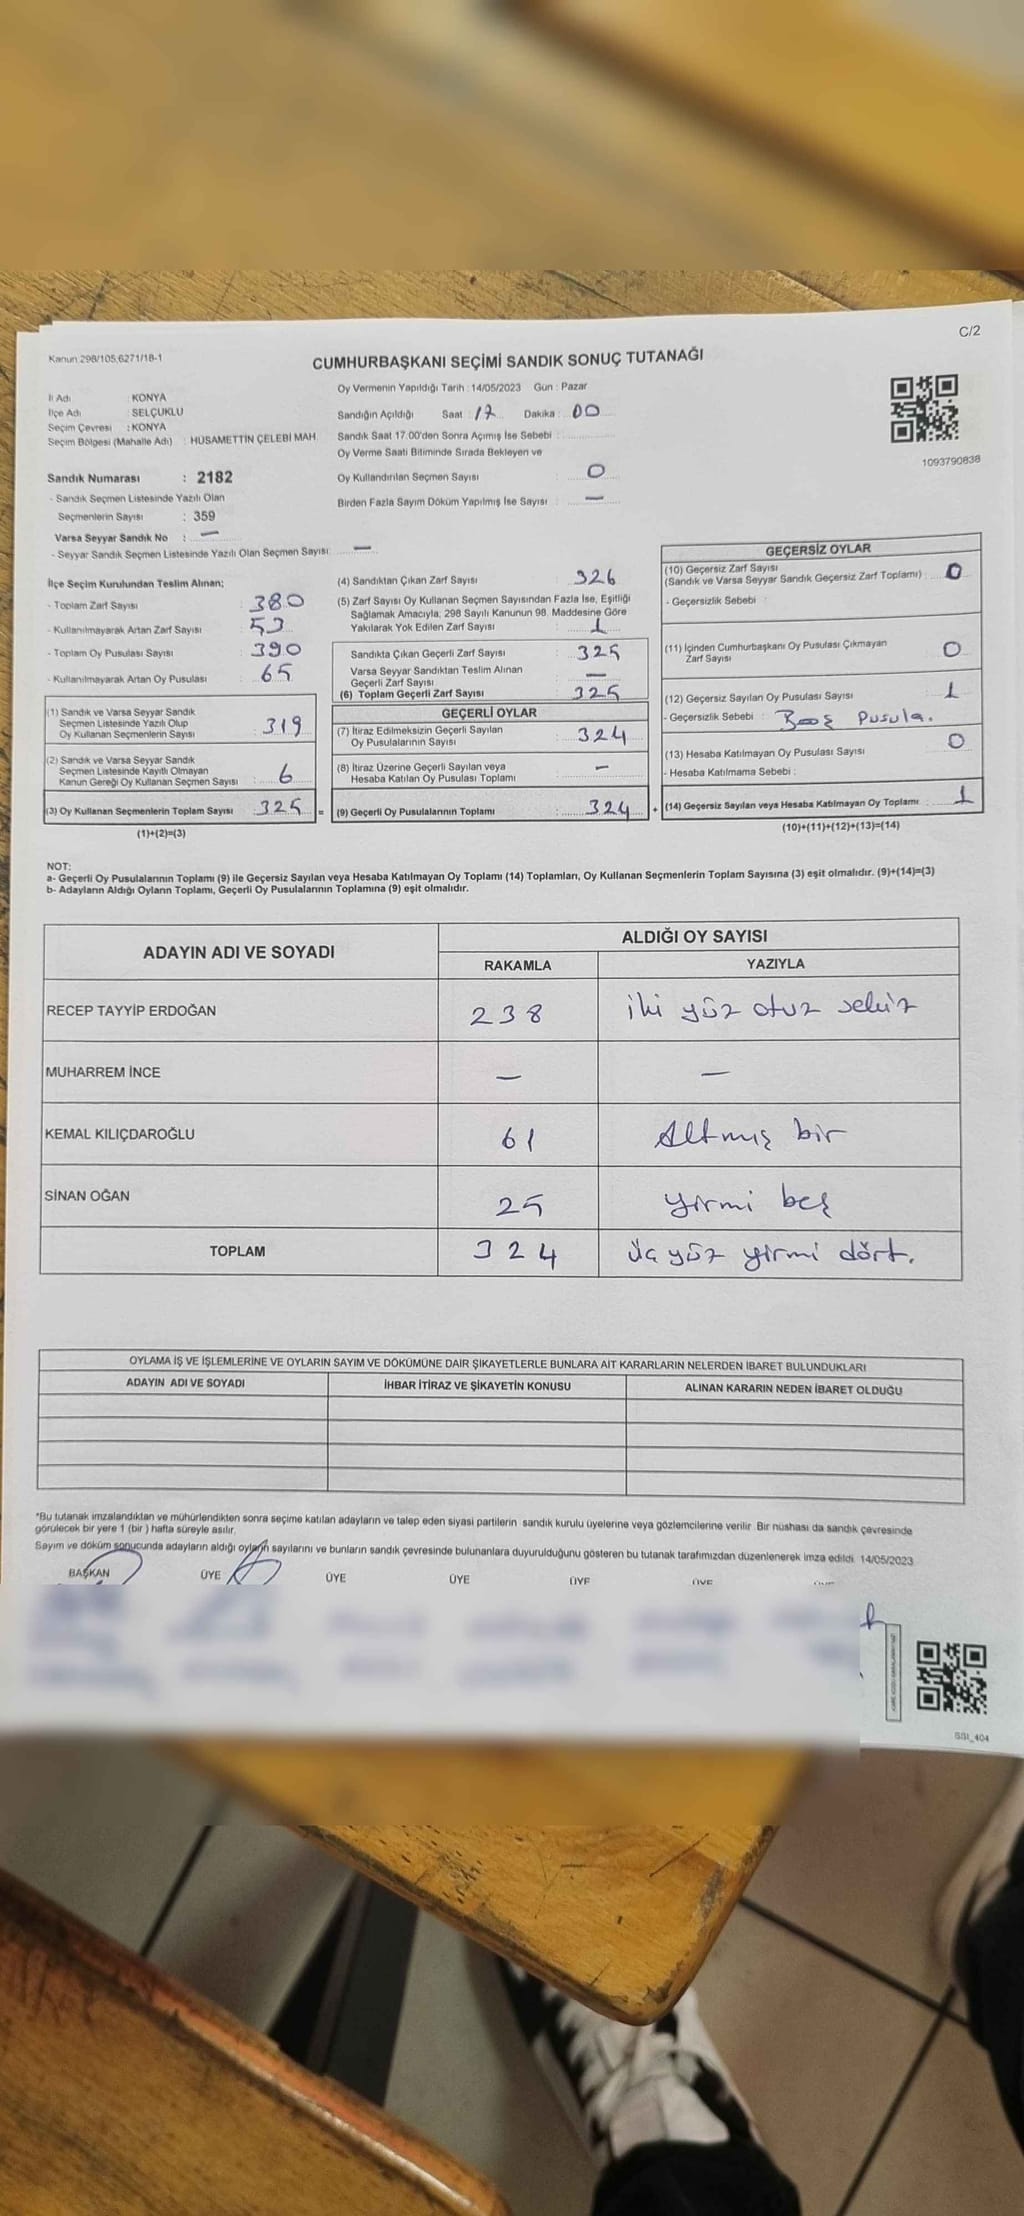 C/2
Kanun 298/105,6271/18-1
CUMHURBAŞKANI SEÇİMİ SANDIK SONUÇ TUTANAĞI
İl Adı : KONYA
İlçe Adı : SELÇUKLU
Seçim Çevresi : KONYA
Seçim Bölgesi (Mahalle Adı) : HÜSAMETTİN ÇELEBİ MAH.
Oy Vermenin Yapıldığı Tarih : 14/05/2023 Gün : Pazar
Sandığın Açıldığı Saat : 17 Dakika : 00
Sandık Saat 17.00'den Sonra Açımış İse Sebebi :
Oy Verme Saati Bitiminde Sırada Bekleyen ve
Oy Kullandırılan Seçmen Sayısı : 0
Birden Fazla Sayım Döküm Yapılmış İse Sayısı : —
1093790838
Sandık Numarası : 2182
- Sandık Seçmen Listesinde Yazılı Olan
Seçmenlerin Sayısı : 359
Varsa Seyyar Sandık No : —
- Seyyar Sandık Seçmen Listesinde Yazılı Olan Seçmen Sayısı: —
İlçe Seçim Kurulundan Teslim Alınan;
- Toplam Zarf Sayısı : 380
- Kullanılmayarak Artan Zarf Sayısı : 53
- Toplam Oy Pusulası Sayısı : 390
- Kullanılmayarak Artan Oy Pusulası : 65
(1) Sandık ve Varsa Seyyar Sandık
Seçmen Listesinde Yazılı Olup
Oy Kullanan Seçmenlerin Sayısı : 319
(2) Sandık ve Varsa Seyyar Sandık
Seçmen Listesinde Kayıtlı Olmayan
Kanun Gereği Oy Kullanan Seçmen Sayısı : 6
(3) Oy Kullanan Seçmenlerin Toplam Sayısı : 325 =
(1)+(2)=(3)
(4) Sandıktan Çıkan Zarf Sayısı : 326
(5) Zarf Sayısı Oy Kullanan Seçmen Sayısından Fazla İse, Eşitliği
Sağlamak Amacıyla, 298 Sayılı Kanunun 98. Maddesine Göre
Yakılarak Yok Edilen Zarf Sayısı : 1
Sandıkta Çıkan Geçerli Zarf Sayısı : 325
Varsa Seyyar Sandıktan Teslim Alınan
Geçerli Zarf Sayısı : —
(6) Toplam Geçerli Zarf Sayısı : 325
GEÇERLİ OYLAR
(7) İtiraz Edilmeksizin Geçerli Sayılan
Oy Pusulalarının Sayısı : 324
(8) İtiraz Üzerine Geçerli Sayılan veya
Hesaba Katılan Oy Pusulası Toplamı : —
(9) Geçerli Oy Pusulalarının Toplamı : 324 +
GEÇERSİZ OYLAR
(10) Geçersiz Zarf Sayısı
(Sandık ve Varsa Seyyar Sandık Geçersiz Zarf Toplamı) : 0
- Geçersizlik Sebebi :
(11) İçinden Cumhurbaşkanı Oy Pusulası Çıkmayan
Zarf Sayısı : 0
(12) Geçersiz Sayılan Oy Pusulası Sayısı : 1
- Geçersizlik Sebebi : Boş Pusula.
(13) Hesaba Katılmayan Oy Pusulası Sayısı : 0
- Hesaba Katılmama Sebebi :
(14) Geçersiz Sayılan veya Hesaba Katılmayan Oy Toplamı : 1
(10)+(11)+(12)+(13)=(14)
NOT:
a- Geçerli Oy Pusulalarının Toplamı (9) ile Geçersiz Sayılan veya Hesaba Katılmayan Oy Toplamı (14) Toplamları, Oy Kullanan Seçmenlerin Toplam Sayısına (3) eşit olmalıdır. (9)+(14)=(3)
b- Adayların Aldığı Oyların Toplamı, Geçerli Oy Pusulalarının Toplamına (9) eşit olmalıdır.
ADAYIN ADI VE SOYADI
ALDIĞI OY SAYISI
RAKAMLA YAZIYLA
RECEP TAYYİP ERDOĞAN 238 iki yüz otuz sekiz
MUHARREM İNCE — —
KEMAL KILIÇDAROĞLU 61 Altmış bir
SİNAN OĞAN 25 yirmi beş
TOPLAM 324 üç yüz yirmi dört.
OYLAMA İŞ VE İŞLEMLERİNE VE OYLARIN SAYIM VE DÖKÜMÜNE DAİR ŞİKAYETLERLE BUNLARA AİT KARARLARIN NELERDEN İBARET BULUNDUKLARI
ADAYIN ADI VE SOYADI İHBAR İTİRAZ VE ŞİKAYETİN KONUSU ALINAN KARARIN NEDEN İBARET OLDUĞU
*Bu tutanak imzalandıktan ve mühürlendikten sonra seçime katılan adayların ve talep eden siyasi partilerin sandık kurulu üyelerine veya gözlemcilerine verilir. Bir nüshası da sandık çevresinde
görülecek bir yere 1 (bir ) hafta süreyle asılır.
Sayım ve döküm sonucunda adayların aldığı oyların sayılarını ve bunların sandık çevresinde bulunanlara duyurulduğunu gösteren bu tutanak tarafımızdan düzenlenerek imza edildi. 14/05/2023
BAŞKAN ÜYE ÜYE ÜYE ÜYE ÜYE